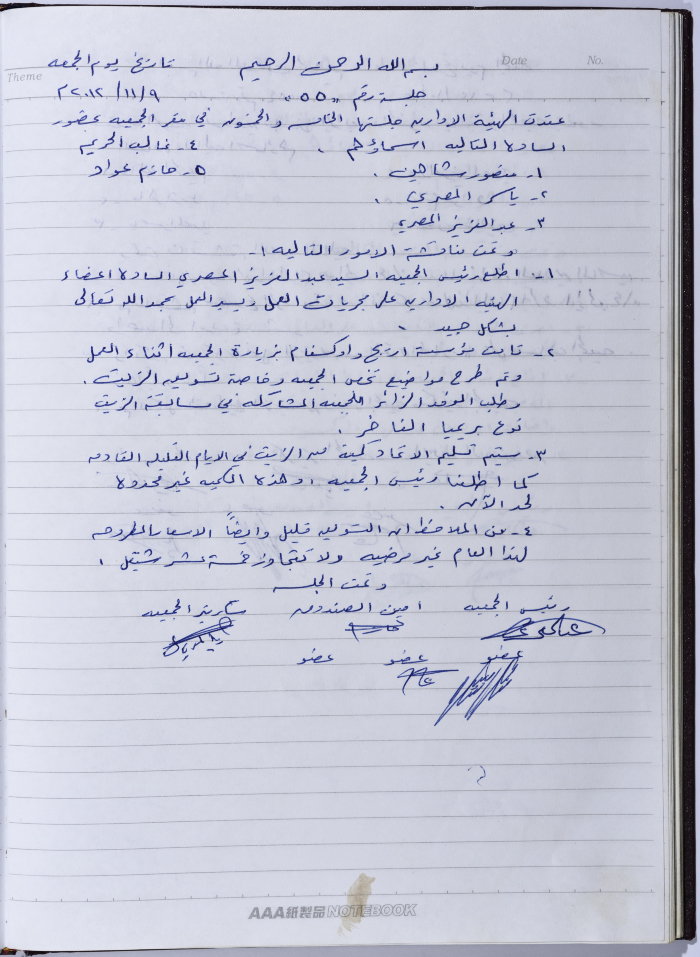 Theme
Date
No.
بسم الله الرحمن الرحيم تاريخ يوم الجمعه
جلسة رقم "٥٥" ٢٠١٢/١١/٩م
عقدت الهيئة الادارية جلستها الخامسه والخمسون في مقر الجمعيه بحضور
السادة التاليه اسماؤهم . ٤- غالب الحريم
١- منصور شاهين . ٥- حازم عواد
٢- ياسر المصري .
٣- عبدالعزيز المصري
وتمت مناقشة الامور التاليه :-
١- اطلع رئيس الجمعيه السيد عبدالعزيز المصري السادة اعضاء
الهيئه الاداريه على مجريات العمل وسير العمل بحمد الله تعالى
بشكل جيد .
٢- قامت مؤسسة اريج واوكسفام بزيارة الجمعيه أثناء العمل
وتم طرح مواضيع تخص الجمعيه وخاصة تسويق الزيت .
وطلب الوفد الزائر للجمعيه المشاركه في مسابقة الزيت
نوع بريميا الفاخر .
٣- سيتم تسليم الاتحاد كمية من الزيت في الايام القليله القادمه
كما اطلعنا رئيس الجمعيه . وهذه الكميه غير محدودة
لحد الآن .
٤- من الملاحظ ان التسويق قليل وايضاً الاسعار المطروحه
لهذا العام غير مرضيه ولا تتجاوز خمسة عشر شيقل .
وتمت الجلسه
رئيس الجمعيه امين الصندوق سكرتير الجمعيه
عضو عضو عضو
AAA紙製品 NOTEBOOK